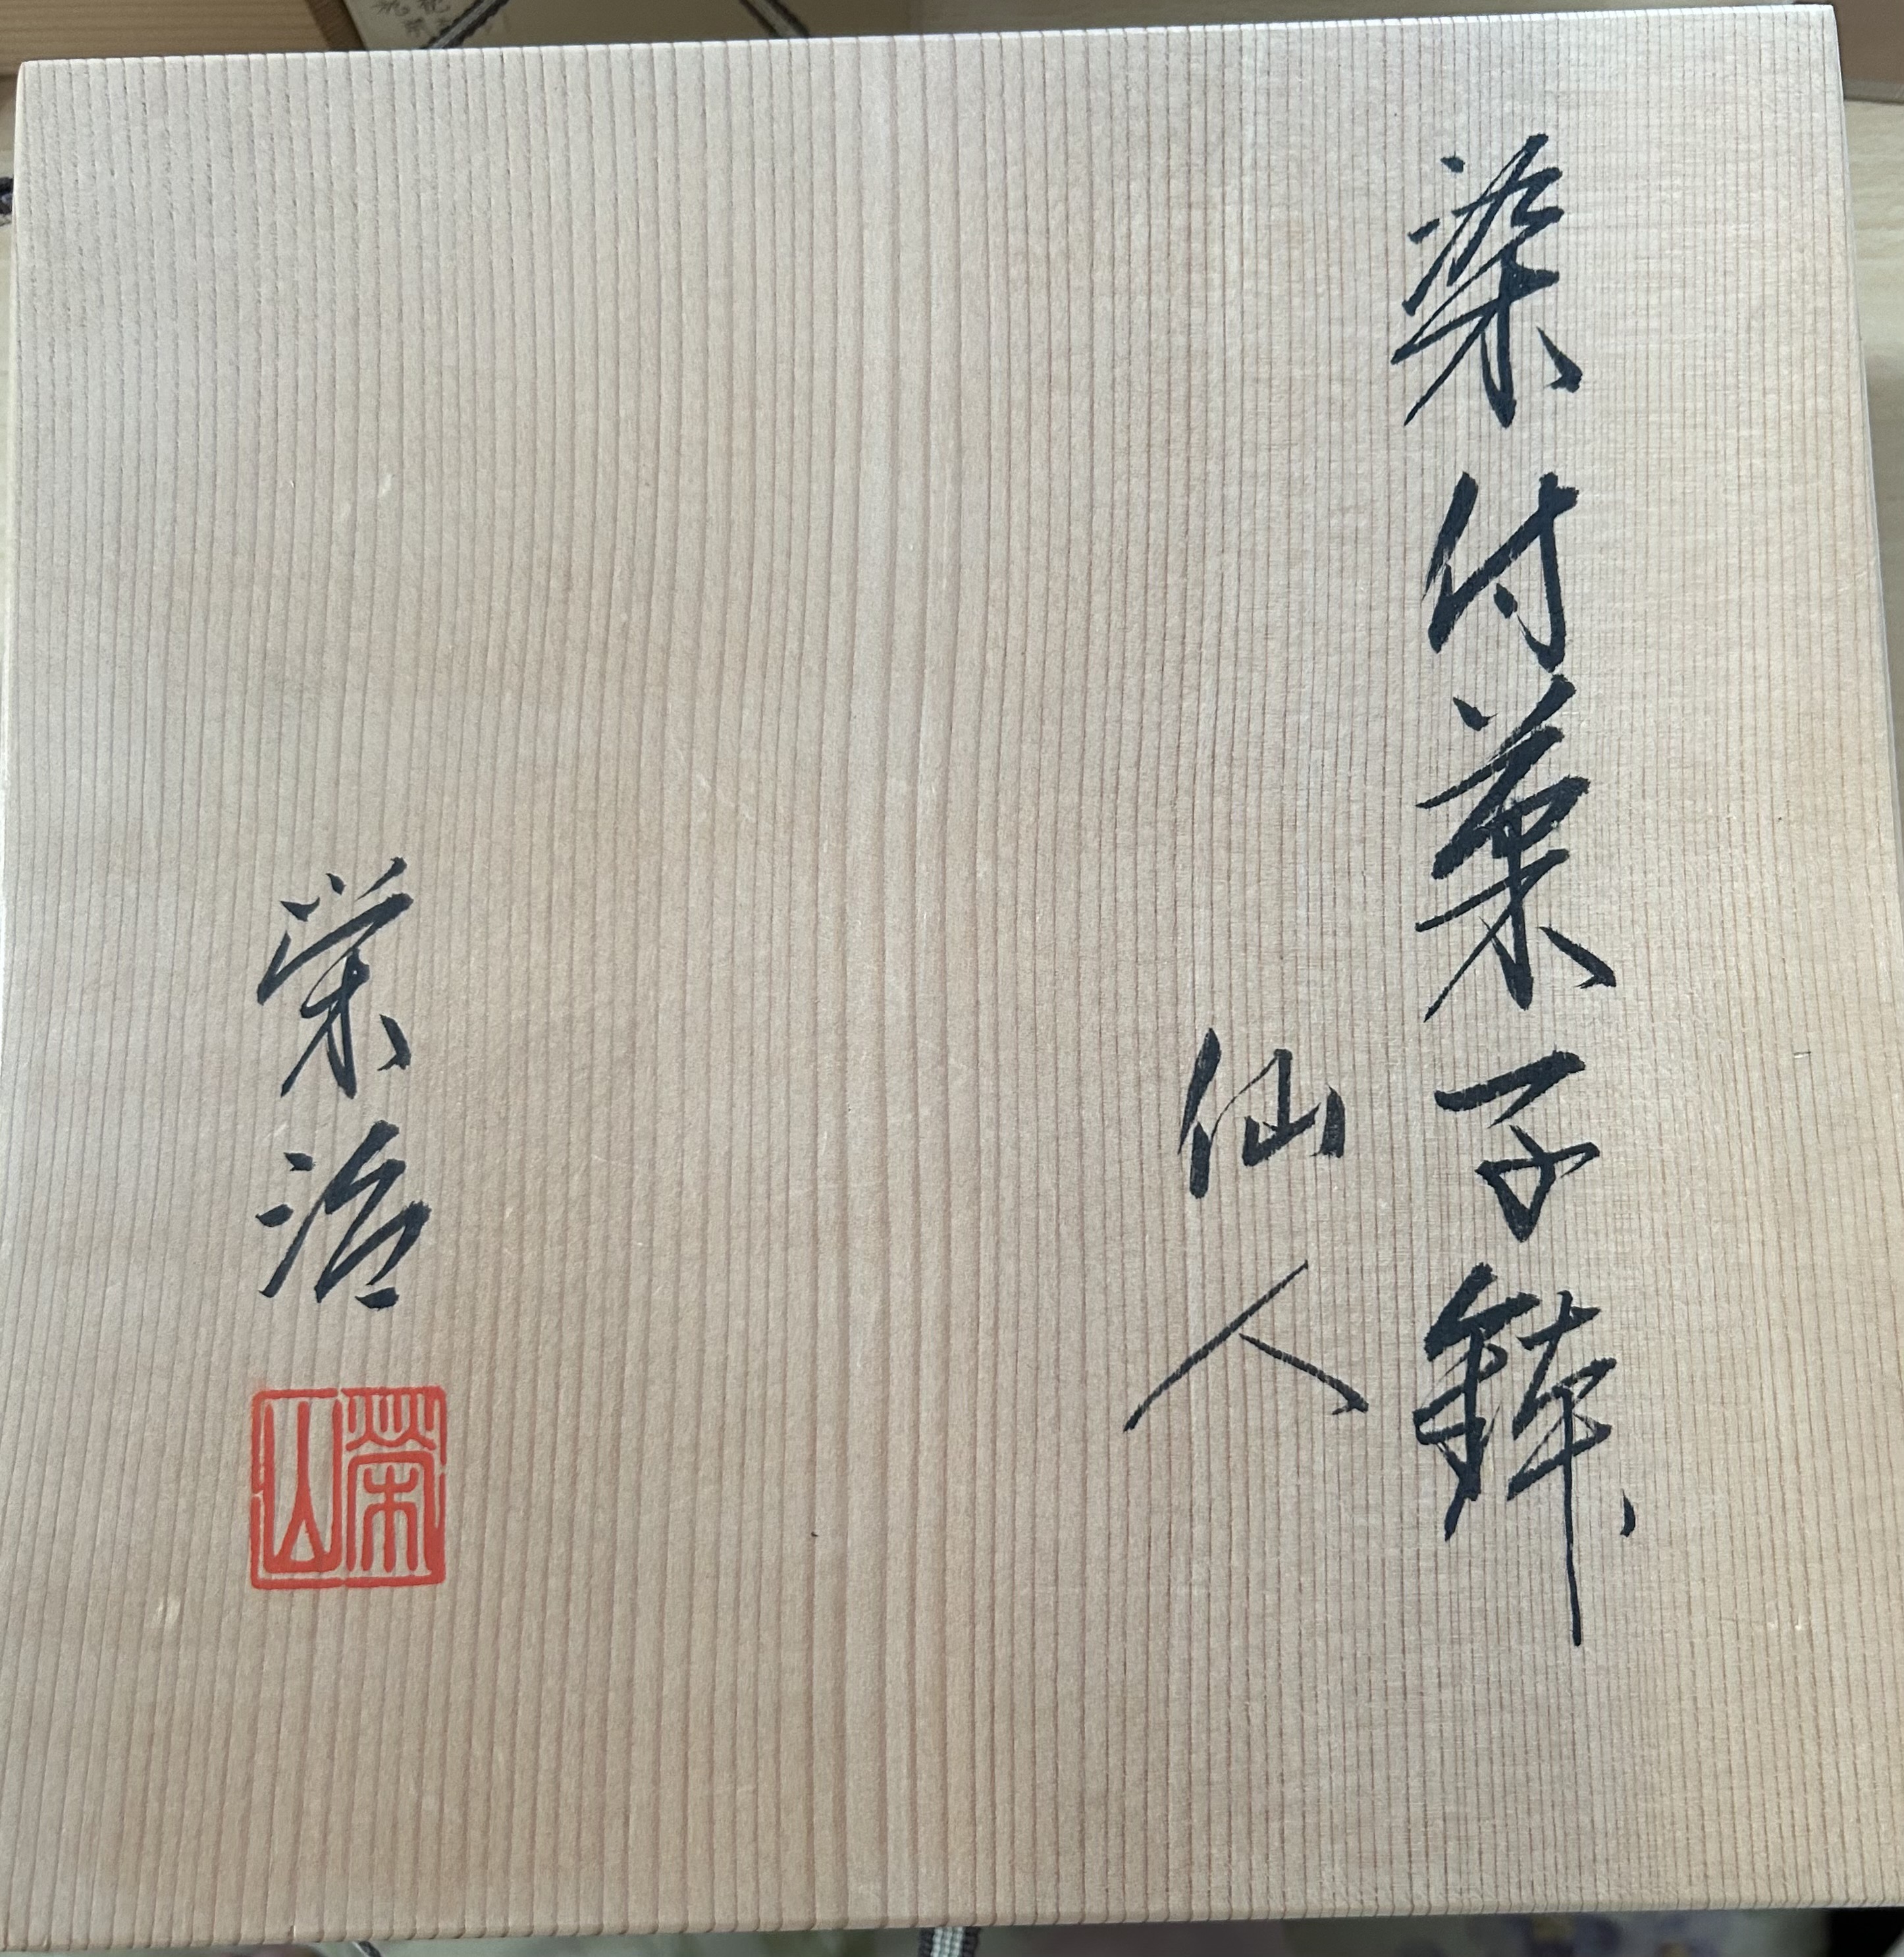 染付菓子鉢
仙人
栄治
榮山